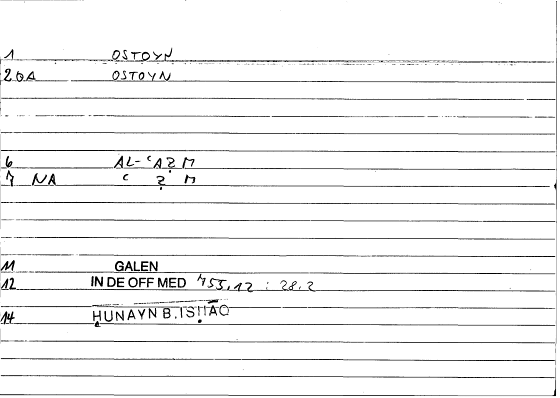 1 OSTOYN
2 GA OSTOYN
6 AL-ʿAẒM
7 NA ʿ Ẓ M
11 GALEN
12 IN DE OFF MED 755,12 : 28.2
14 ḤUNAYN B. ISḤĀQ